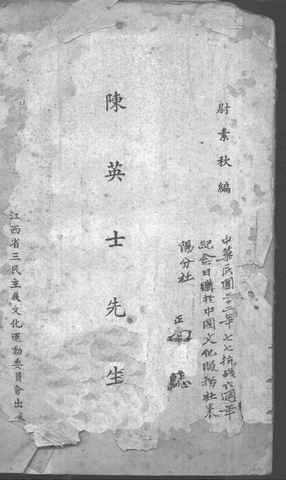 尉素秋編
中華民國卅二年七七抗戰六週年
紀念日購於中國文化服務社耒
陽分社
陳英士先生
江西省三民主義文化運動委員會出